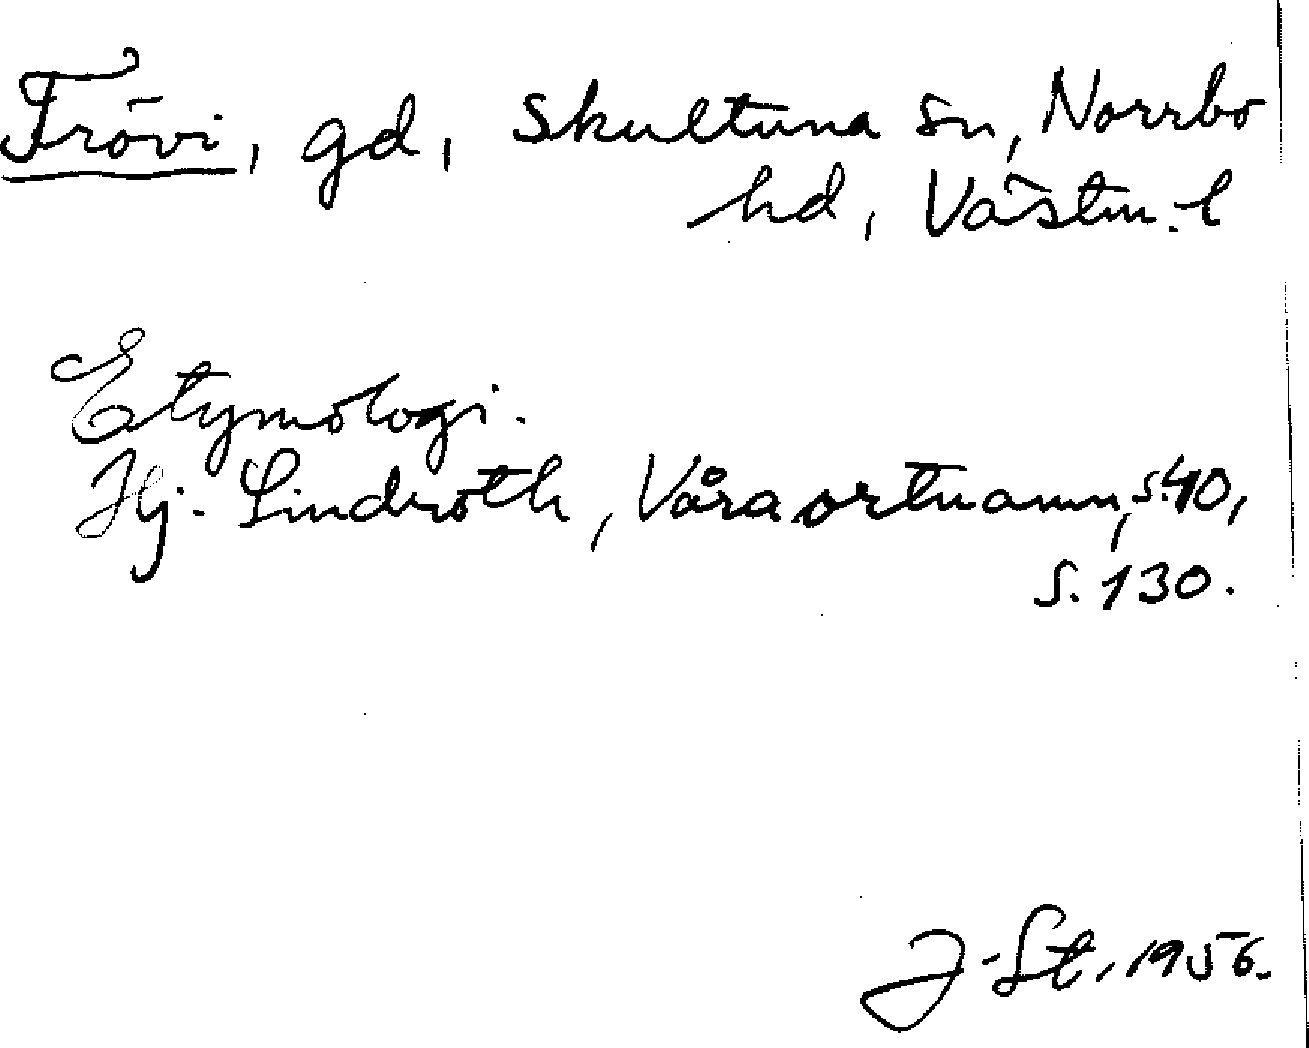 Frövi, gd, Skultuna sn, Norrbo
hd, Västm. l
Etymologi.
Hj. Lindroth, Våra ortnamn, s. 40,
s. 130.
J-St, 1956.